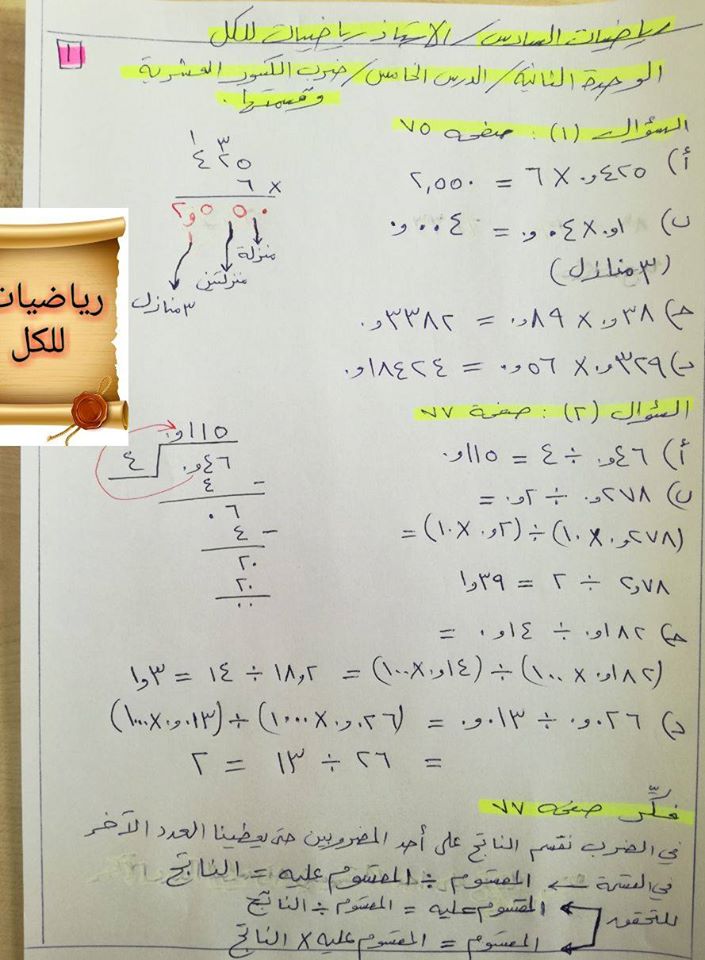 رياضيات السادس / الاستاذ رياضيات للكل
١
الوحدة الثانية / الدرس الخامس / ضرب الكسور العشرية
وقسمتها.
السؤال (١) : صفحه ٧٥
أ) ٤٢٥و٠ × ٦ = ٢,٥٥٠
ب) ١و٠ × ٠٤و٠ = ٠٠٤و٠
(٣ منازل)
جـ) ٣٨و٠ × ٨٩و٠ = ٣٣٨٢و٠
د) ٣٢٩و٠ × ٥٦و٠ = ١٨٤٢٤و٠
١ ٣
٤٢٥
٦ ×
٥٥٠و٢
منزلة
منزلتين
٣ منازل
رياضيات
للكل
السؤال (٢) : صفحة ٧٧
أ) ٤٦و٠ ÷ ٤ = ١١٥و٠
ب) ٢٧٨و٠ ÷ ٢و٠ =
(٢٧٨و٠ × ١٠) ÷ (٢و٠ × ١٠) =
٧٨و٢ ÷ ٢ = ٣٩و١
جـ) ١٨٢و٠ ÷ ١٤و٠ =
(١٨٢و٠ × ١٠٠) ÷ (١٤و٠ × ١٠٠) = ٢و١٨ ÷ ١٤ = ٣و١
د) ٠٢٦و٠ ÷ ٠١٣و٠ = (٠٢٦و٠ × ١٠٠٠) ÷ (٠١٣و٠ × ١٠٠٠)
= ٢٦ ÷ ١٣ = ٢
١١٥و٠
٤
٤٦و٠
٤ -
٠٦
٤ -
٢٠
٢٠
٠٠
فكّر صفحه ٧٧
في الضرب نقسم الناتج على أحد المضروبين حتى يعطينا العدد الآخر
في القسمة ← المقسوم ÷ المقسوم عليه = الناتج
للتحقق
المقسوم عليه = المقسوم ÷ الناتج
المقسوم = المقسوم عليه × الناتج